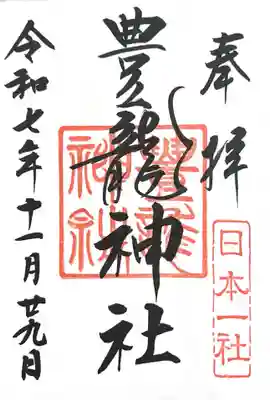 奉拝
日本一社
豊龍神社
令和七年十一月廿九日